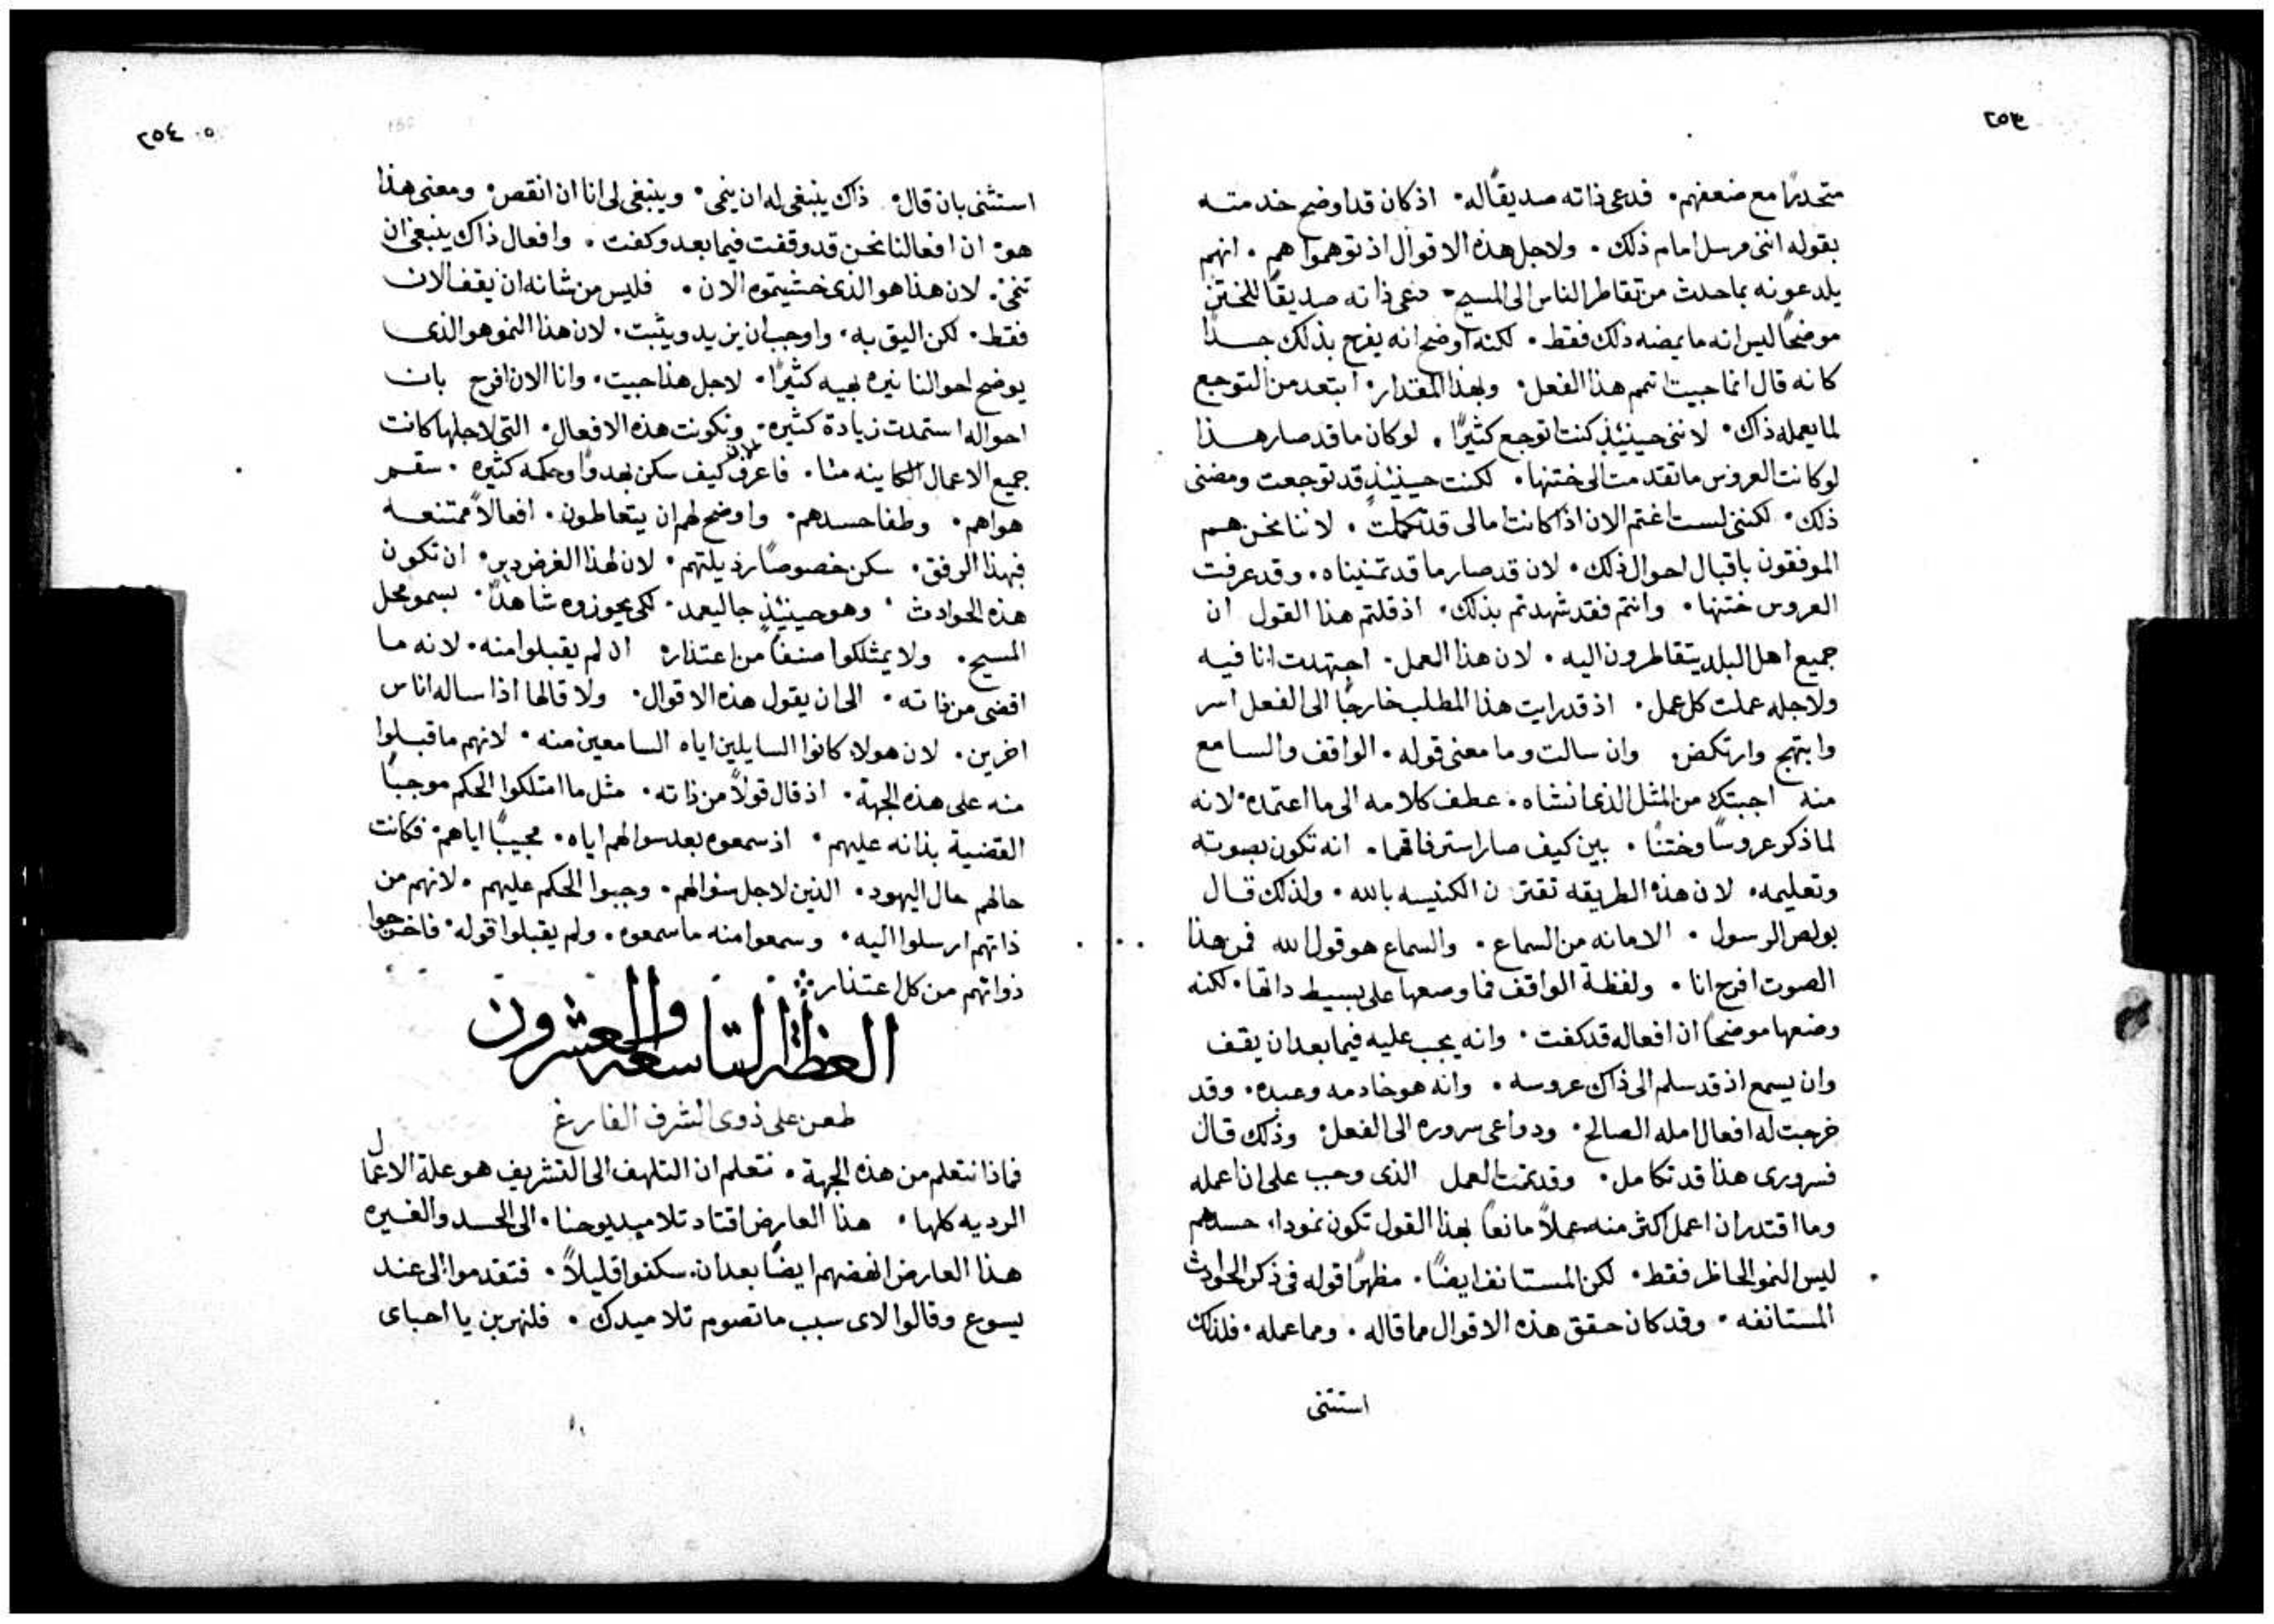 ٢٥٣
متحدرًا مع ضعفهم. فدعى ذاته صديقًا له. اذ كان قد اوضح خدمته
بقوله انني مرسل امام ذلك. ولاجل هذه الاقوال اذ توهموا هم. انهم
يلدعونه بما حدث من تقاطر الناس الى المسيح. دعى ذاته صديقًا للختن
موضحًا ليس انه ما يمضه ذلك فقط. لكنه اوضح انه يفرح بذلك جدًا
كانه قال انما جيت اتمم هذا الفعل. وبهذا المقدار ابتعد من التوجع
لما يعمله ذاك. لانني حينيذٍ كنت اتوجع كثيرًا. لو كان ما قد صار هذا
لو كانت العروس ما تقدمت الى ختنها. لكنت حينيذٍ قد توجعت ومضني
ذلك. لكنني لست اغتم الان اذا كانت امالي قد تكملت. لاننا نحن هم
الموفقون باقبال احوال ذلك. لان قد صار ما قد تمنيناه. وقد عرفت
العروس ختنها. وانتم فقد شهدتم بذلك. اذ قلتم هذا القول ان
جميع اهل البلد يتقاطرون اليه. لان هذا العمل. اجتهدت انا فيه
ولاجله عملت كل عمل. اذ قد رايت هذا المطلب خارجًا الى الفعل اسر
وابتهج وارتكض. وان سالت وما معنى قوله. الواقف والسامع
منه اجبتك من المثل الذي انشاه. عطف كلامه الى ما اعتمده. لانه
لما ذكر عروسًا وختنًا. بين كيف صار استرفاقهما. انه تكون بصوته
وتعليمه. لان هذه الطريقه تقترن الكنيسه بالله. ولذلك قال
بولص الرسول. الامانه من السماع. والسماع هو قول الله فمن هذا
الصوت افرح انا. ولفظة الواقف فما وضعها على بسيط داتها. لكنه
وضعها موضحًا ان افعاله قد كفت. وانه يجب عليه فيما بعد ان يقف
وان يسمع اذ قد سلم الى ذاك عروسه. وانه هو خادمه وعبده. وقد
خرجت له افعال امله الصالح. ودواعي سروره الى الفعل. وذلك قال
فسروري هذا قد تكامل. وقد تمت العمل الذي وجب علي ان اعمله
وما اقتدر ان اعمل اكثر منه عملاً مانعًا بهذا القول تكون نمودا. حسدهم
ليس النمو الحاظر فقط. لكن المستانف ايضًا. مظهرًا قوله في ذكر الحوادث
المستانفه. وقد كان حقق هذه الاقوال مما قاله. ومما عمله. فلذلك
استثنى
٢٥٤
استثنى بان قال. ذاك ينبغي له ان ينمى. وينبغي لي انا ان انقص. ومعنى هذا
هو. ان افعالنا نحن قد وقفت فيما بعد وكفت. وافعال ذاك ينبغي ان
تنمى. لان هذا هو الذي خشيتموه الان. فليس من شانه ان يقف الان
فقط. لكن اليق به. واوجب ان يزيد ويثبت. لان هذا النمو هو الذي
يوضح احوالنا نيره بهيه كثيرًا. لاجل هذا جيت. وانا الان افرح بان
احواله استمدت زيادة كثيره. وتكونت هذه الافعال. التي لاجلها كانت
جميع الاعمال الكاينه منا. فاعرف الان كيف سكن بهدوًا وحكمه كثيره. سقم
هواهم. وطفا حسدهم. واوضح لهم ان يتعاطون. افعالاً ممتنعه
فبهذا الرفق. سكن خصوصًا رذيلتهم. لان لهذا الغرض دبر. ان تكون
هذه الحوادث. وهو حينيذٍ جا ليعمد. لكي يحوزوه شاهدًا. بسمو محل
المسيح. ولا يمتلكوا صنفًا من اعتذاره ان لم يقبلوا منه. لانه ما
افضى من ذاته. الى ان يقول هذه الاقوال. ولا قالها اذا ساله اناس
اخرين. لان هولاء كانوا السايلين اياه السامعين منه. لانهم ما قبلوا
منه على هذه الجهة. اذ قال قولاً من ذاته. مثل ما امتلكوا الحكم موجبًا
القضية بذاته عليهم. اذ سمعوه بعد سوالهم اياه. مجيبًا اياهم. فكانت
حالهم حال اليهود. الذين لاجل سوالهم. وجبوا الحكم عليهم. لانهم من
ذاتهم ارسلوا اليه. وسمعوا منه ما سمعوه. ولم يقبلوا قوله. فاخرجوا
ذواتهم من كل اعتذار
العظة التاسعة والعشرون
طعن على ذوي الشرف الفارغ
فماذا نتعلم من هذه الجهة. نتعلم ان التلهف الى التشريف هو علة الاعمال
الرديه كلها. هذا العارض اقتاد تلاميد يوحنا. الى الحسد والغيره
هذا العارض انهضهم ايضًا بعد ان سكنوا قليلاً. فتقدموا الى عند
يسوع وقالوا لاي سبب ما تصوم تلاميدك. فلنهربن يا احباي